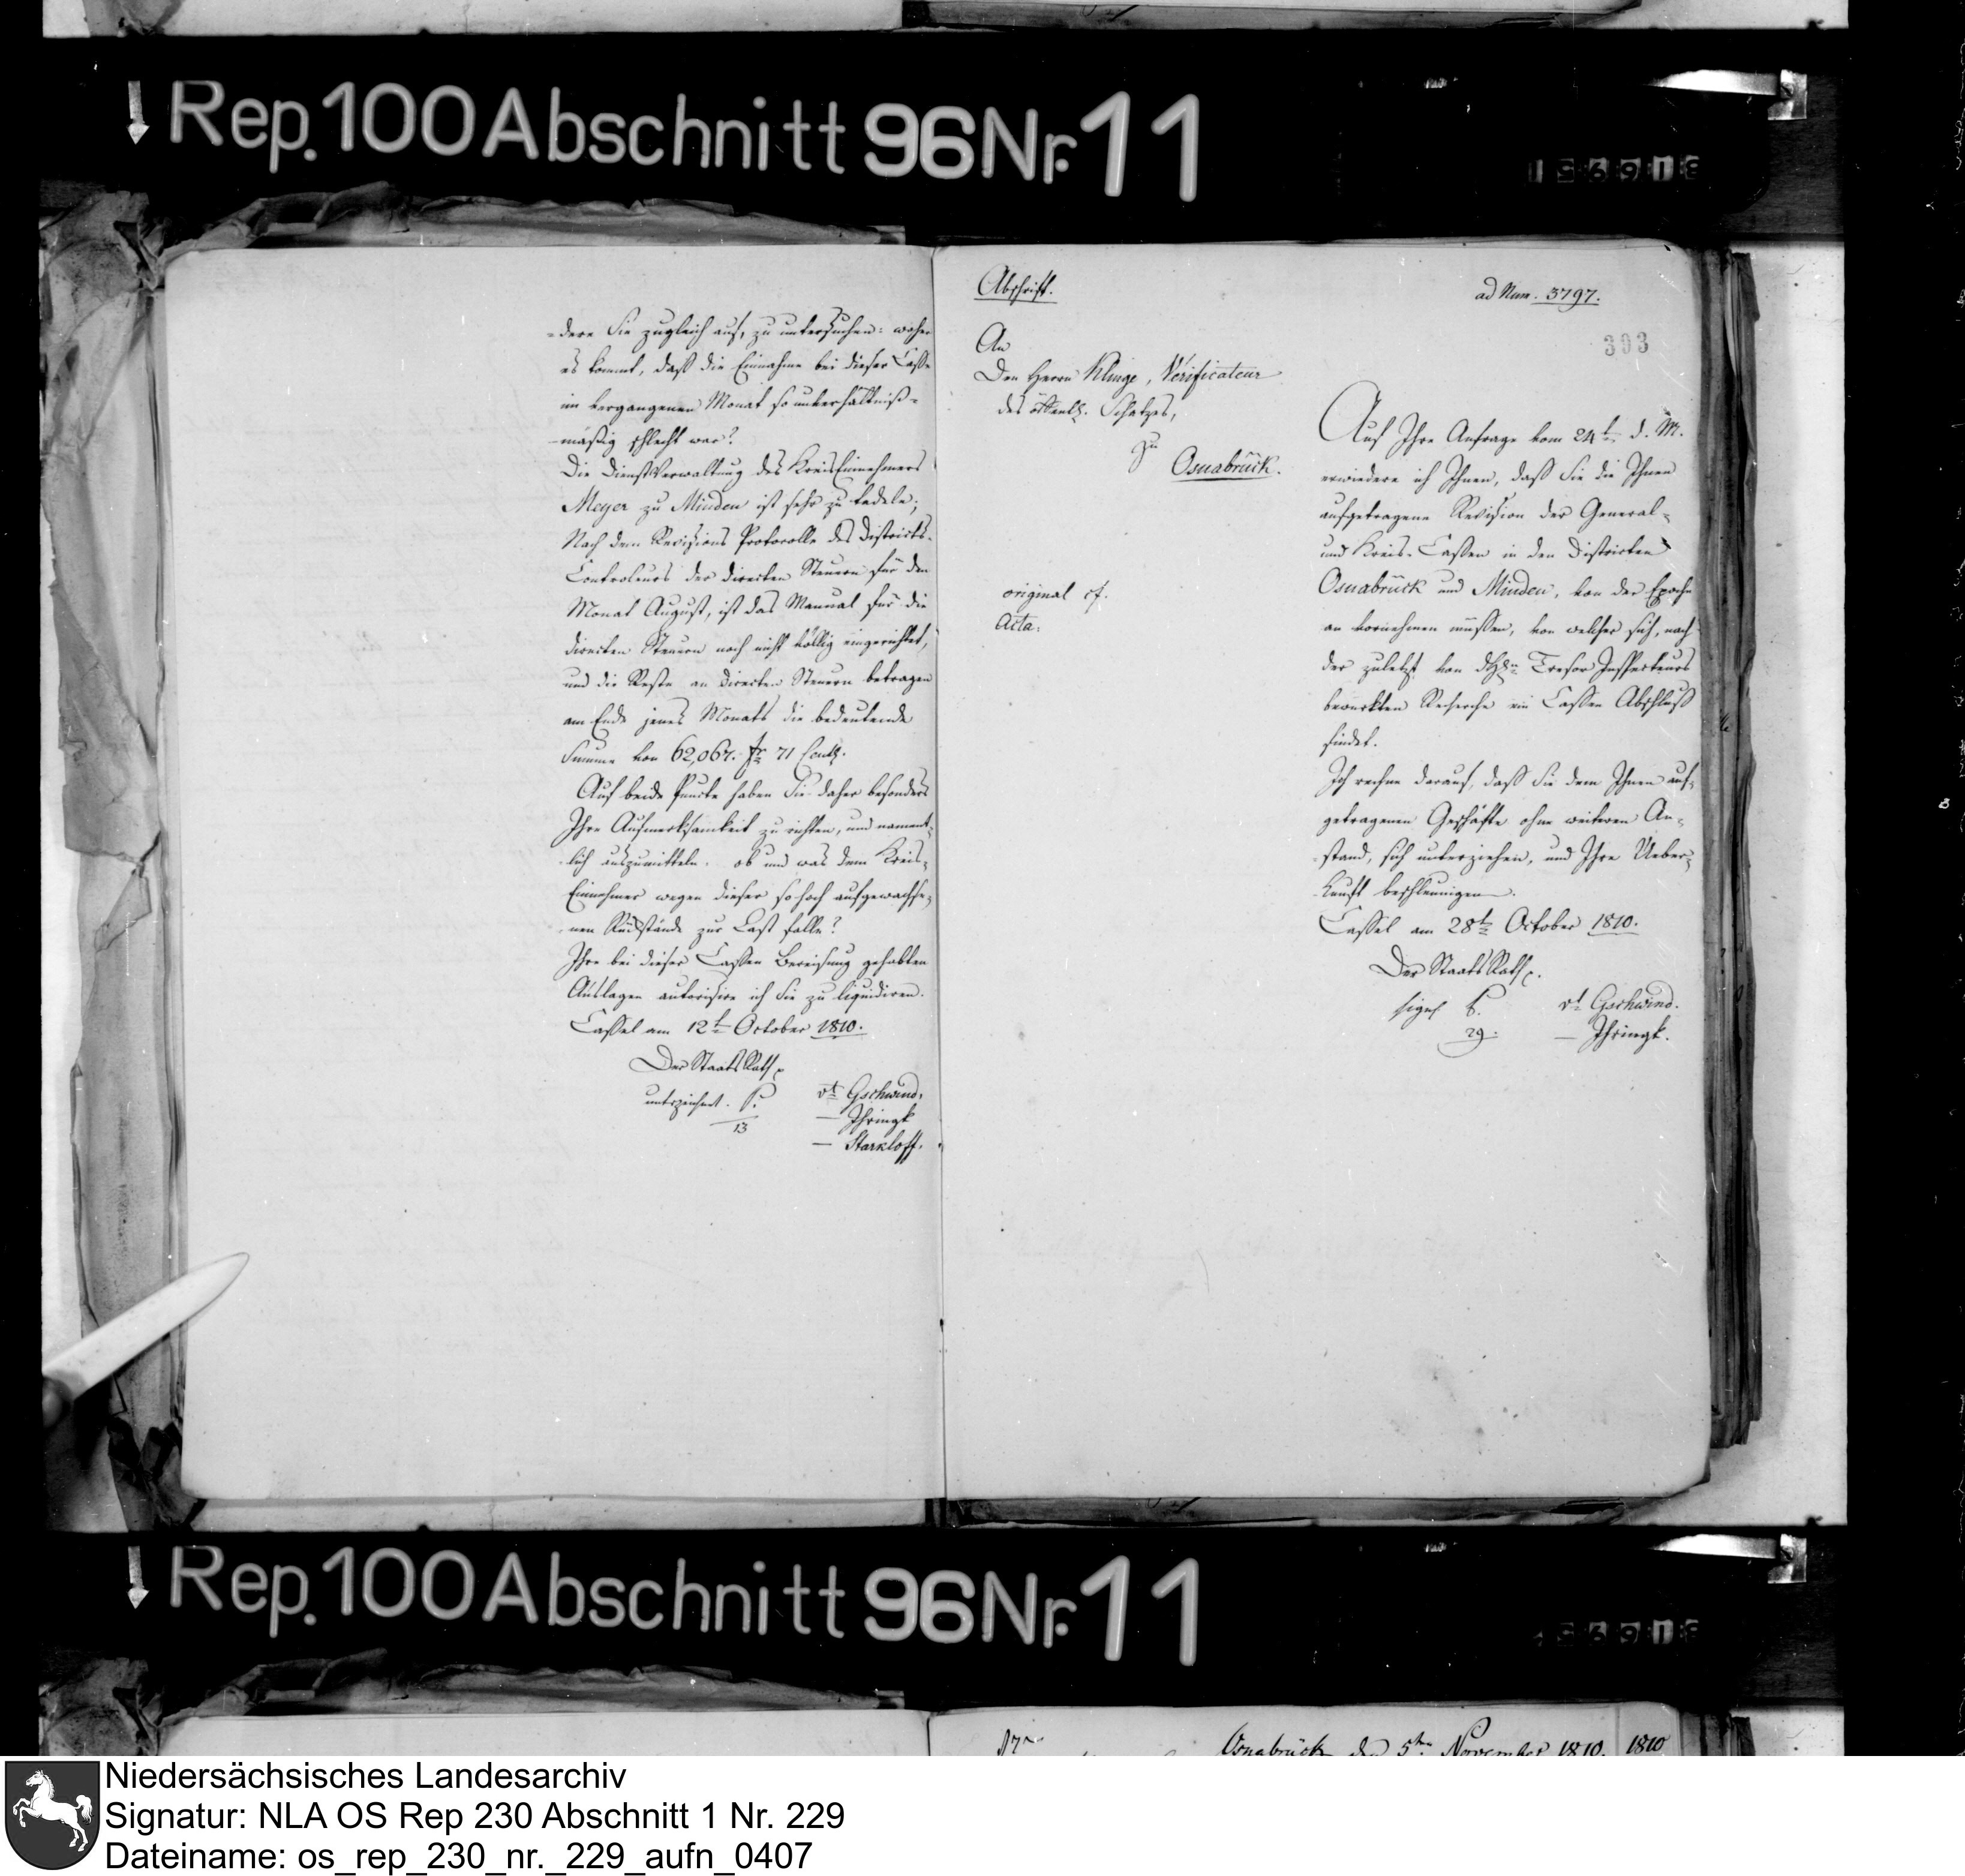 Rep. 100 Abschnitt 96 Nr. 11
-dere Sie zugleich auf, zu untersuchen: woher
es kommt, daß die Einnahme bei dieser Casse
im vergangenen Monat so unverhältniß-
-mäßig schlecht war?
Die Dienst Verwaltung des Kreis Einnehmers
Meyer zu Minden ist sehr zu tadeln;
Nach dem Revisions Protocolle des Districts-
Controleurs der directen Steuern für den
Monat August, ist das Manual für die
directen Steuern noch nicht völlig eingerichtet,
und die Reste an directen Steuern betragen
am Ende jenes Monats die bedeutende
Summe von 62,067. fr 71 Cent.
Auf beide Puncte haben Sie daher besonders
Ihre Aufmerksamkeit zu richten, und nament-
-lich auszumitteln. ob und was dem Kreis-
Einnehmer wegen dieser so hoch aufgewachse-
-nen Rückstände zur Last falle?
Ihre bei dieser Cassen Bereisung gehabten
Auslagen autorisire ich Sie zu liquidiren.
Cassel am 12t October 1810.
Der Staats Rath
unterzeichnet. P.
13
vt Gschwind.
— Ihringk
— Starkloff.
Abschrift.
ad Num. 3797.
303
An
Den Herrn Klinge, Verificateur
des öffentl. Schatzes,
zu
Osnabrück.
original cf.
Acta.
Auf Ihre Anfrage vom 24t d. M.
erwiedere ich Ihnen, daß Sie die Ihnen
aufgetragene Revision der General-
und Kreis-Cassen in den Districten
Osnabrück und Minden, von der Epoche
an vornehmen müssen, von welcher sich, nach
der zuletzt von Tresor Inspecteurs
bewirkten Recherche ein Cassen Abschluß
findet.
Ich rechne darauf, daß Sie dem Ihnen auf-
getragenen Geschäfte ohne weiteren An-
-stand, sich unterziehen, und Ihre Ueber-
-kunft beschleunigen.
Cassel am 28t October 1810.
Der Staats Rath
sign
29.
vt Gschwind.
— Ihringk.
Rep. 100 Abschnitt 96 Nr. 11
Osnabrück den 5ten November 1810. 1810
Niedersächsisches Landesarchiv
Signatur: NLA OS Rep 230 Abschnitt 1 Nr. 229
Dateiname: os_rep_230_nr._229_aufn_0407